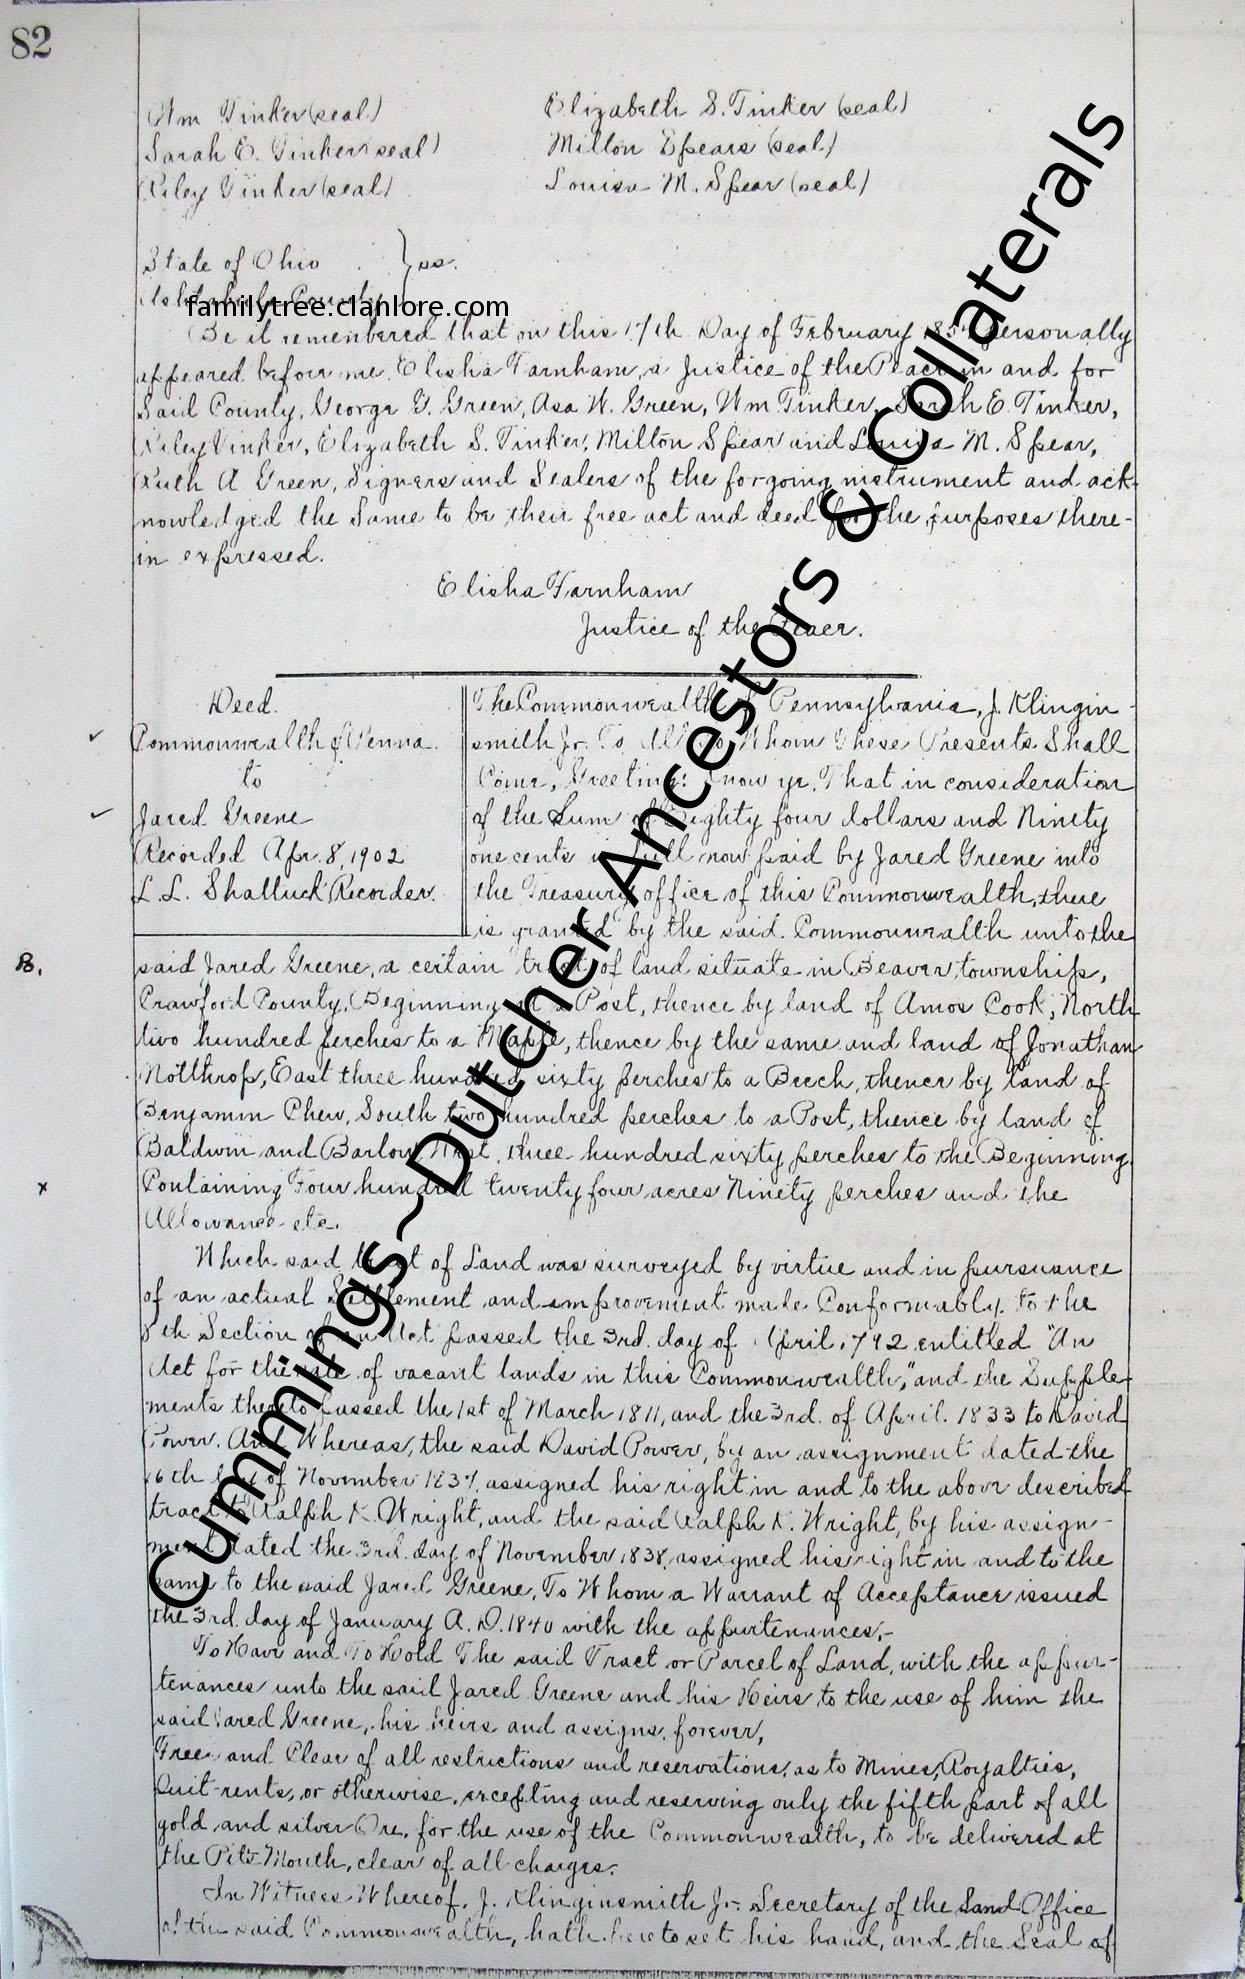 82
Wm Tinker (seal) Elizabeth S. Tinker (seal)
Sarah E. Tinker (seal) Milton Spears (seal)
Riley Tinker (seal) Louisa M. Spear (seal)
State of Ohio } ss.
Ashtabula County
familytree.clanlore.com
Be it remembered that on this 17th Day of February personally
appeared before me Elisha Farnham, a Justice of the Peace in and for
Said County, George G. Green, Asa W. Green, Wm Tinker, Sarah E. Tinker,
Riley Tinker, Elizabeth S. Tinker, Milton Spear and Louisa M. Spear,
Ruth A Green, Signers and Sealers of the forgoing instrument and ack-
nowledged the Same to be their free act and deed for the purposes there-
in expressed.
Elisha Farnham
Justice of the Peace.
Deed.
Commonwealth of Penna.
to
Jared Greene
Recorded Apr. 8, 1902
L. L. Shattuck Recorder.
The Commonwealth of Pennsylvania, J. Klingin
smith Jr. To All to Whom These Presents Shall
Come, Greeting: Know ye, That in consideration
of the Sum of Eighty four dollars and Ninety
one cents in full now paid by Jared Greene into
the Treasury office of this Commonwealth, there
is granted by the said Commonwealth unto the
B. said Jared Greene, a certain tract of land situate in Beaver township,
Crawford County, Beginning at a Post, thence by land of Amos Cook, North
two hundred perches to a Maple, thence by the same and land of Jonathan
Notthrop, East three hundred sixty perches to a Beech, thence by land of
Benjamin Chew, South two hundred perches to a Post, thence by land of
Baldwin and Barlow, West, three hundred sixty perches to the Beginning.
x Containing Four hundred twenty four acres Ninety perches and the
Allowance etc.
Which said tract of Land was surveyed by virtue and in pursuance
of an actual Settlement and improvement made Conformably to the
8th Section of an Act passed the 3rd. day of April 1792 entitled "An
Act for the sale of vacant lands in this Commonwealth," and the Supple-
ments thereto passed the 1st of March 1811, and the 3rd. of April. 1833 to David
Power. And Whereas, the said David Power, by an assignment dated the
16th day of November 1837, assigned his right in and to the above described
tract to Ralph K. Wright, and the said Ralph K. Wright, by his assign-
ment dated the 3rd. day of November 1838, assigned his right in and to the
same to the said Jared Greene, To Whom a Warrant of Acceptance issued
the 3rd. day of January A. D. 1840 with the appurtenances,-
To Have and To Hold The said Tract or Parcel of Land, with the appur-
tenances unto the said Jared Greene and his Heirs to the use of him the
said Jared Greene, his heirs and assigns, forever,
Free and Clear of all restrictions and reservations, as to Mines, Royalties,
Quit-rents, or otherwise, excepting and reserving only the fifth part of all
gold and silver Ore, for the use of the Commonwealth, to be delivered at
the Pits Mouth, clear of all charges.
In Witness Whereof, J. Klinginsmith Jr. Secretary of the Land Office
of the said Commonwealth, hath hereto set his hand, and the Seal of
Cummings~Dutcher Ancestors & Collaterals